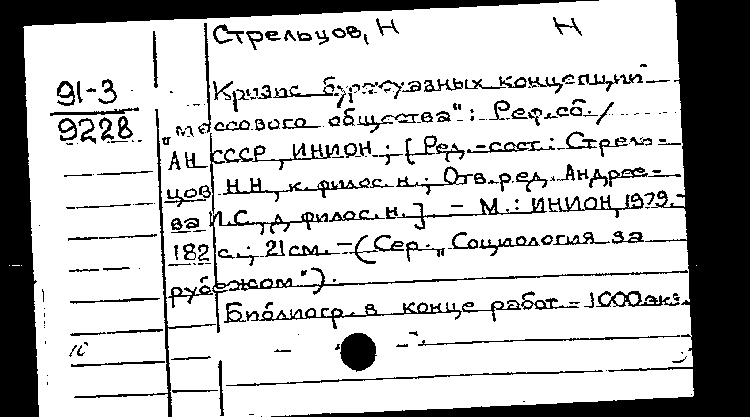 Стрельцов, Н Н
91-3
9228
Кризис буржуазных концепций
"массового общества": Реф.сб. /
АН СССР, ИНИОН; [Ред.-сост.: Стрель-
цов Н.Н., к. филос. н.; Отв. ред. Андрее-
ва И.С., д. филос. н.]. - М.: ИНИОН, 1979.-
182 с.; 21 см. - (Сер. "Социология за
рубежом").
Библиогр. в конце работ. - 1000 экз.